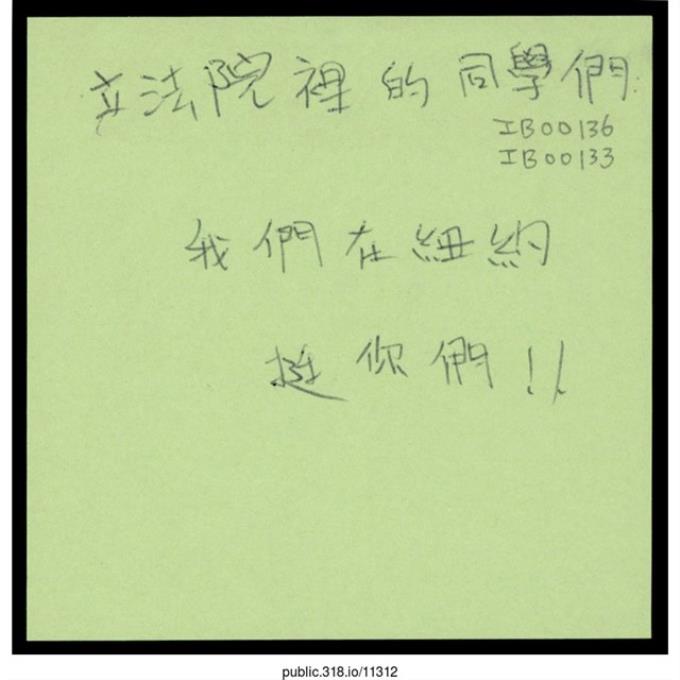 立法院裡的同學們
IB00136
IB00133
我們在紐約
挺你們!!
public.318.io/11312